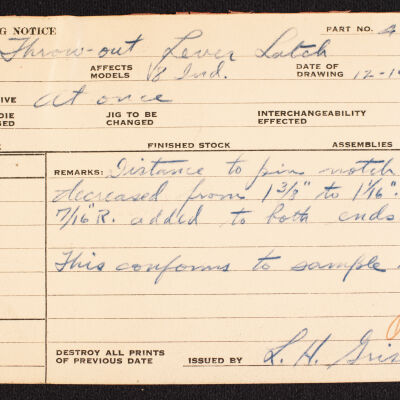 G NOTICE PART NO. 4
Throw-out Lever Latch
AFFECTS MODELS V8 Ind. DATE OF DRAWING 12-19
IVE At once
DIE JIG TO BE CHANGED INTERCHANGEABILITY EFFECTED
FINISHED STOCK ASSEMBLIES
REMARKS: Distance to pin notch
decreased from 1 3/8" to 1 1/16".
7/16" R. added to both ends
This conforms to sample.
DESTROY ALL PRINTS OF PREVIOUS DATE ISSUED BY L. H. Gris